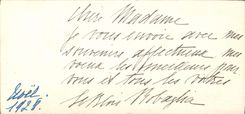 Chère Madame
je vous envoie avec mes
souvenirs affectueux mes
voeux les meilleurs pour
vous et tous les vôtres
Noël
1928.